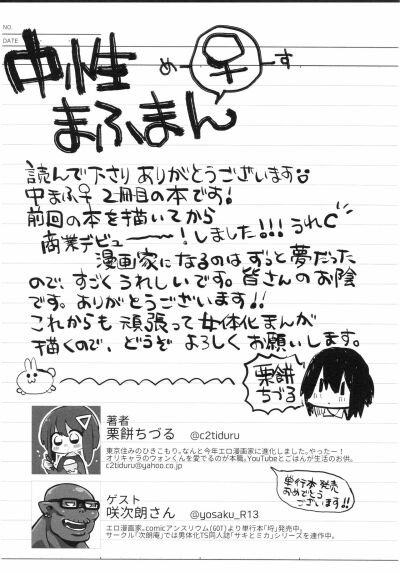 NO.
DATE
中性
まふまん
め♀す
読んで下さりありがとうございます
中まふ♀ 2冊目の本です!
前回の本を描いてから
商業デビュー――!しました!!! うれC
漫画家になるのはずっと夢だった
ので、すごくうれしいです。皆さんのお陰
です。ありがとうございます!!
これからも頑張って女体化まんが
描くので、どうぞよろしくお願いします。
栗餅
ちづる
著者
栗餅ちづる @c2tiduru
東京住みのひきこもり。なんと今年エロ漫画家に進化しました。やったー!
オリキャラのウォンくんを愛でるのが本職。YouTubeとごはんが生活のお供。
c2tiduru@yahoo.co.jp
単行本発売
おめでとう
ございます!!
ゲスト
咲次朗さん @yosaku_R13
エロ漫画家。comicアンスリウム(GOT)より単行本「埒」発売中。
サークル「次朗庵」では男体化TS同人誌「サキとミカ」シリーズを連作中。